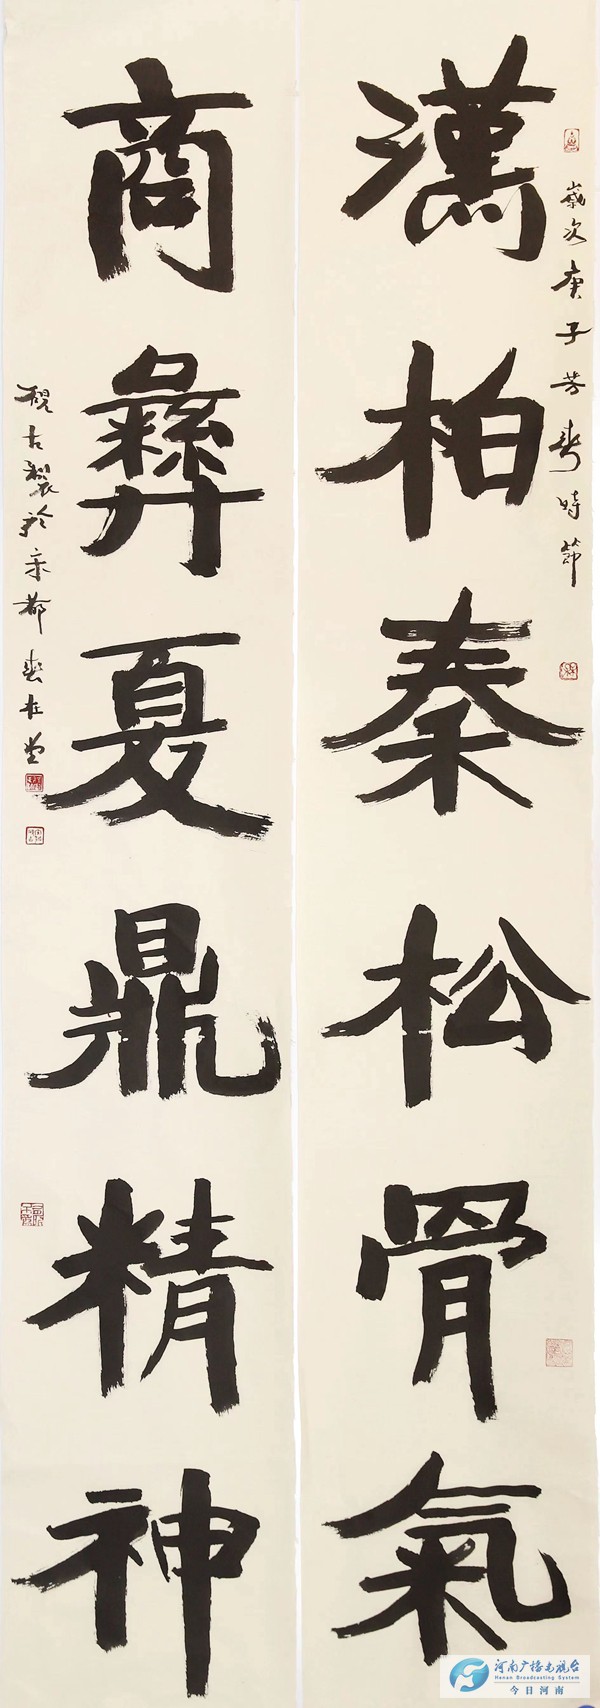 漢柏秦松骨氣
商彝夏鼎精神
歲次庚子芳春時節
硯古製於宋都
河南广播电视台
Henan Broadcasting System
今日河南